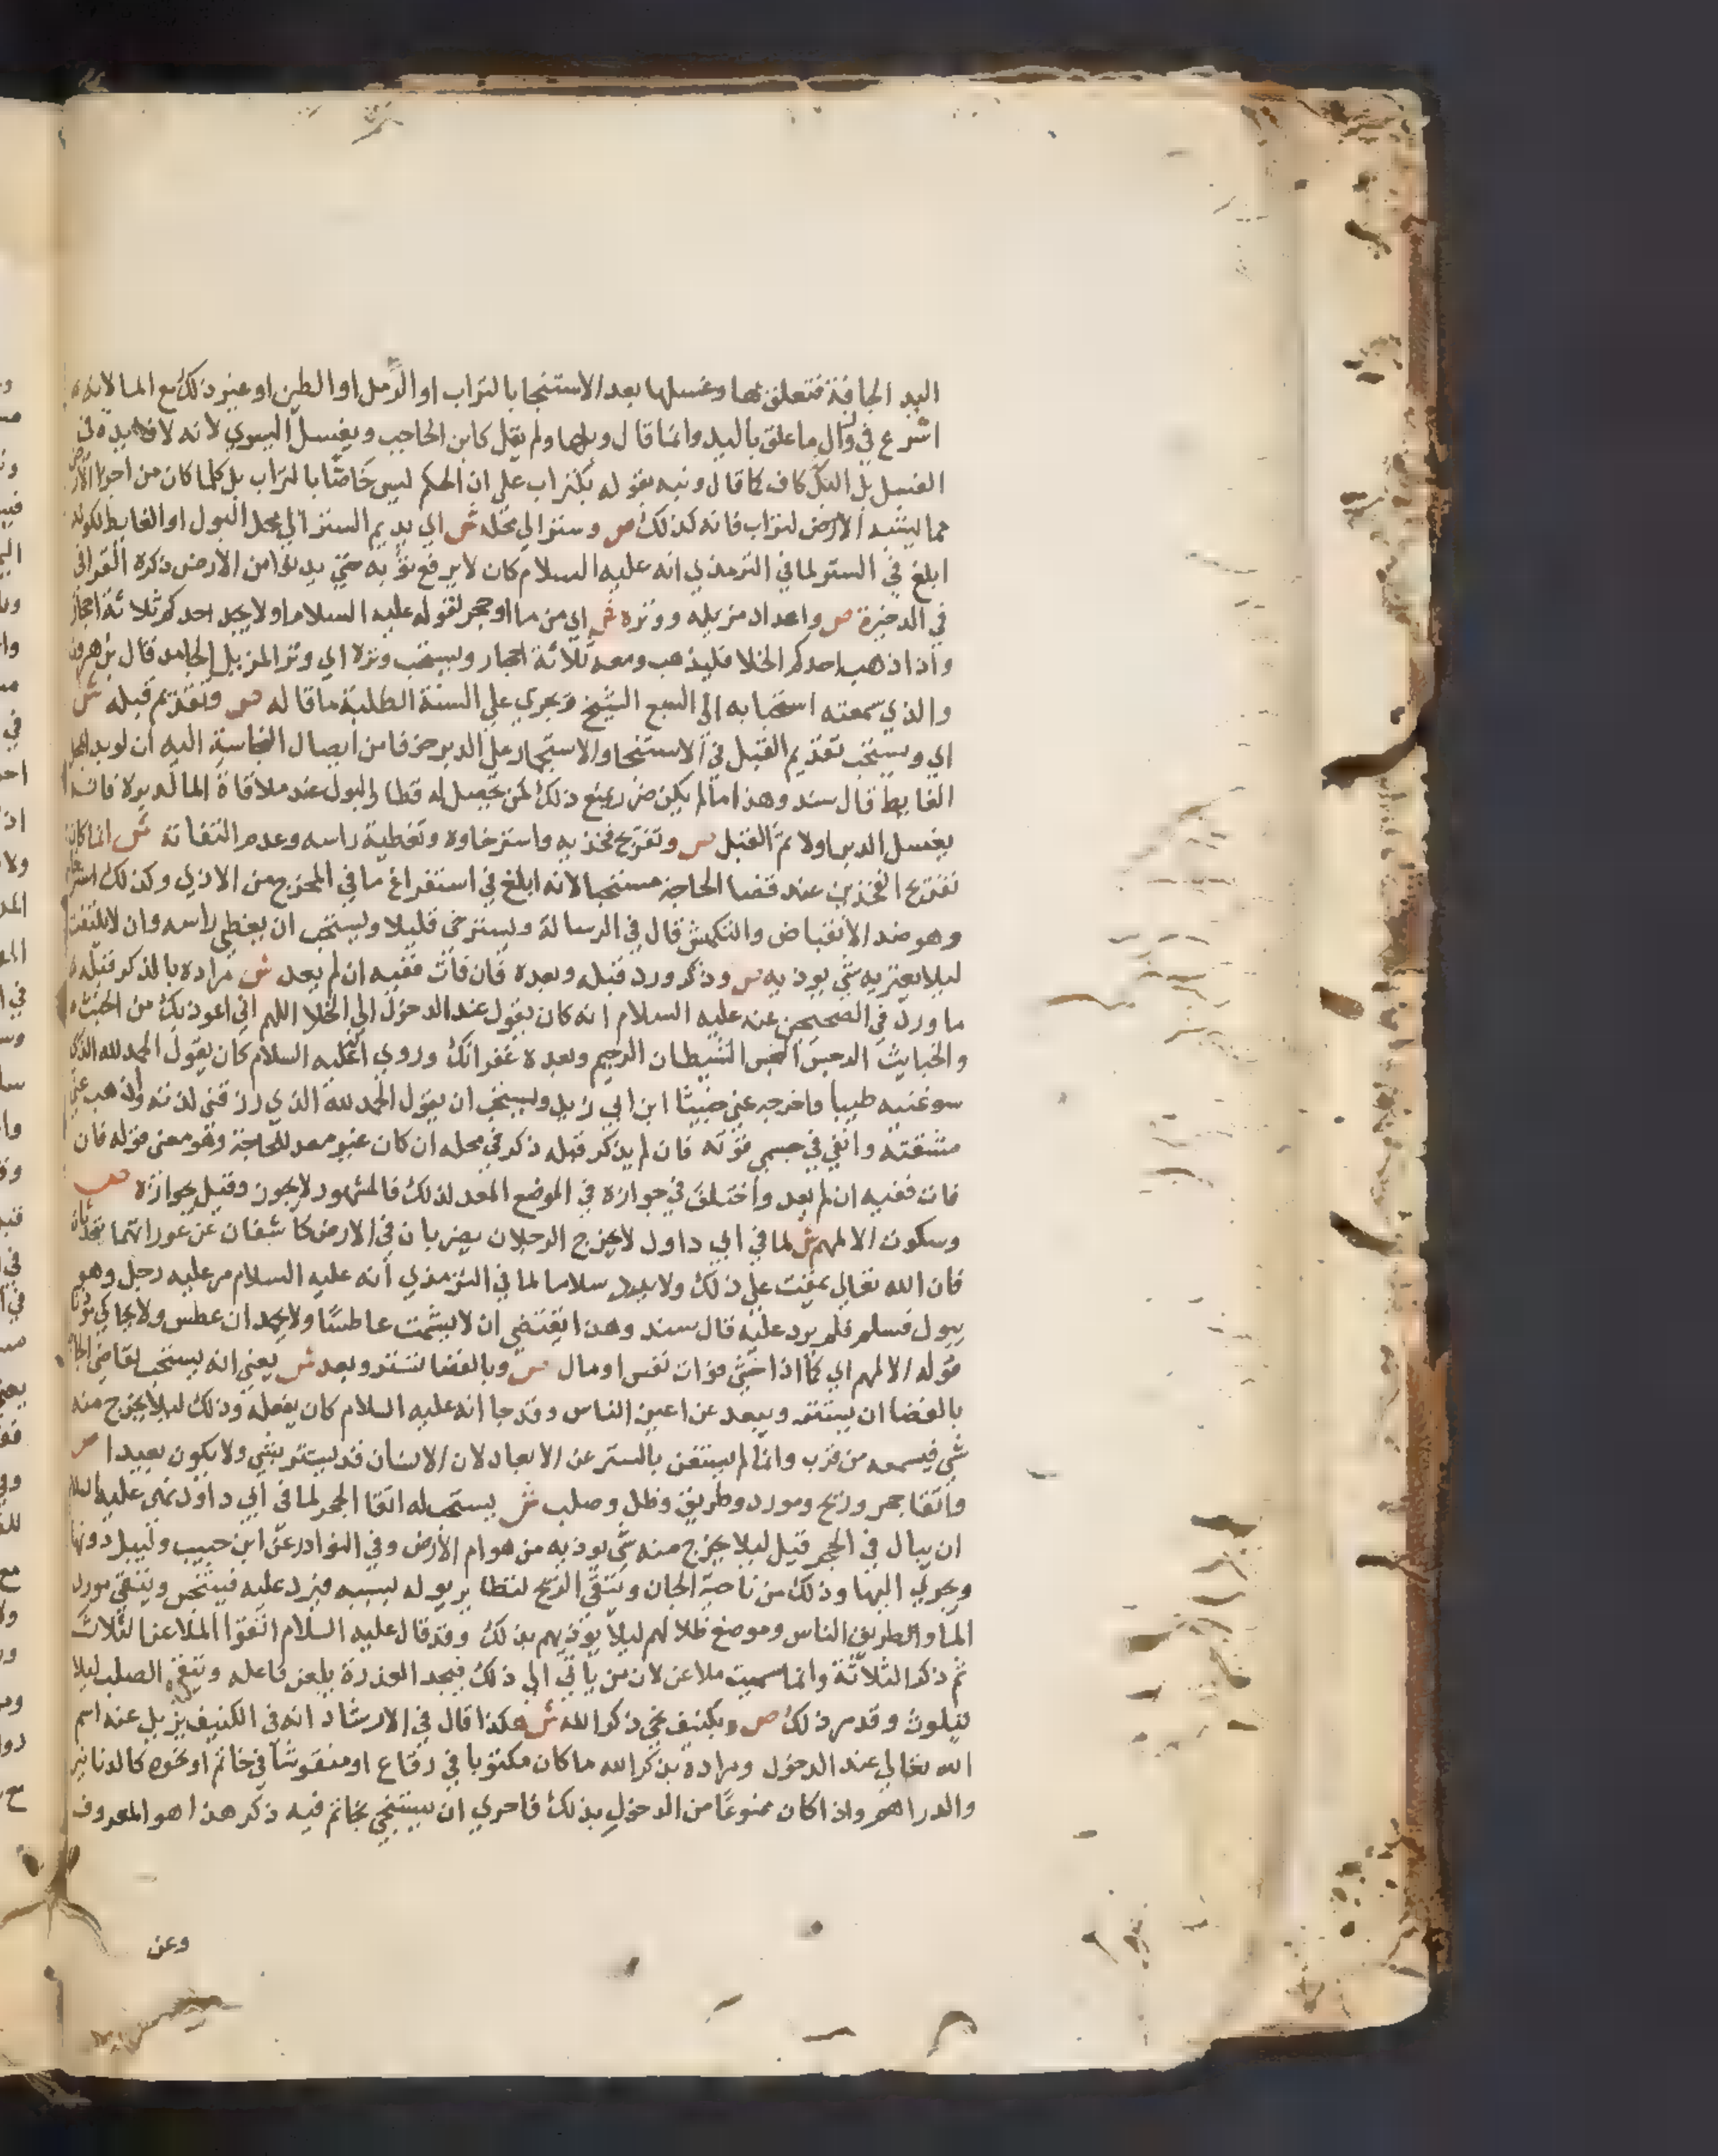 اليد الجافة فتعلق بها وغسلها بعد الاستنجا بالتراب او الرمل او الطين او غير ذلك مع الما لانه
اشرع في زوال ما علق باليد وانما قال وبلها ولم يقل كابن الحاجب ويغسل اليسري لانه لا فايدة في
الغسل بل البل كاف كما قال ونبه بقوله بكتراب علي ان الحكم ليس خاصا بالتراب بل كلما كان من اجزا الارض
مما يشبه التراب فانه كذلك ص وستر الي محله ش اي يديم الستر الي محل البول او الغايط لكونه
ابلغ في الستر ولما في الترمذي انه عليه السلام كان لا يرفع ثوبه حتي يدنوا من الارض ذكره القرافي
في الدخيرة ص واعداد مزيله ووتره ش اي من ما او حجر لقوله عليه السلام اولا يجد احدكم ثلاثة احجار
واذا ذهب احدكم الخلا فليذهب ومعه ثلاثة احجار ويستحب وتره اي وتر المزيل الجامد قال بن هرون
والذي سمعته استحبابه الي السبع الشيخ ويجري علي السنة الطلبة ما قاله ص وتقديم قبله ش
اي ويستحب تقديم القبل في الاستنجا والاستجمار علي الدبر خوفا من ايصال النجاسة اليه ان لو بدا بمحل
الغايط قال سند وهذا ما لم يكن ضرر يمنع ذلك لمن يحصل له قطار البول عند ملاقاة الما لدبره فانه
يغسل الدبر اولا ثم القبل ص وتفريج فخذيه واسترخاوه وتغطية راسه وعدم التفاته ش انما كان
تفريج الفخذين عند قضا الحاجة مستحبا لانه ابلغ في استفراغ ما في المخرج من الاذي وكذلك استرخا
وهو ضد الانقباض والتكمش قال في الرسالة ويسترخي قليلا ويستحب ان يغطي راسه وان لا يلتفت
ليلا يعتريه شي يوذيه ص وذكر ورد قبله وبعده فان فات ففيه ان لم يعد ش مراده بالذكر قبله
ما ورد في الصحيحين عنه عليه السلام انه كان يقول عند الدخول الي الخلا اللهم اني اعوذ بك من الخبث
والخبايث الرجس النجس الشيطان الرجيم وبعده غفرانك وروي انه عليه السلام كان يقول الحمد لله الذي
سوغنيه طيبا واخرجه عني خبيثا ابن ابي زيد ويستحب ان يقول الحمد لله الذي رزقني لذته واذهب عني
مشقته وابقي في جسمي قوته فان لم يذكر قبله ذكر في محله ان كان غير معد للحاجة وهو معني قوله فان
فات ففيه ان لم يعد واختلف في جوازه في الموضع المعد لذلك فالمشهور لا يجوز وقيل بجوازه ص
وسكوت الا لمهم ش لما في ابي داود لا يخرج الرجلان يضربان في الارض كاشفان عن عوراتهما يتحدثان
فان الله تعالي يمقت علي ذلك ولا يرد سلاما لما في الترمذي انه عليه السلام مر عليه رجل وهو
يبول فسلم فلم يرد عليه قال سند وهذا يقتضي ان لا يشمت عاطسا ولا يحمد ان عطس ولا يحاكي موذنا
قوله الا لمهم اي كما اذا خشي فوات نفس او مال ص وبالفضا تستر وبعد ش يعني انه يستحب لقاضي الحاجة
بالفضا ان يستتر ويبعد عن اعين الناس وقد جا انه عليه السلام كان يفعله وذلك ليلا يخرج منه
شي فيسمعه من قرب وانما لم يستغن بالستر عن الابعاد لان الانسان قد يستتر بشي ولا يكون بعيدا ص
واتقا جحر وريح ومورد وطريق وظل وصلب ش يستحب له اتقا الجحر لما في ابي داود نهي عليه السلام
ان يبال في الجحر قيل ليلا يخرج منه شي يوذيه من هوام الارض وفي النوادر عن ابن حبيب وليبل دونها
ويجري اليها وذلك من ناحية الجان ويتقي الريح لتطاير بوله لسببه فيرد عليه فيتنجس ويتقي مورد
الما والطريق الناس وموضع ظلالهم ليلا يوذيهم بذلك وقد قال عليه السلام اتقوا الملاعن الثلاث
ثم ذكر الثلاثة وانما سميت ملاعن لان من ياتي الي ذلك فيجد العذرة يلعن فاعله ويتقي الصلب ليلا
يتلوث وقد مر ذلك ص وبكنيف نحي ذكر الله ش هكذا قال في الارشاد انه في الكنيف يزيل عنه اسم
الله تعالي عند الدخول ومراده بذكر الله ما كان مكتوبا في رقاع او منقوشا في خاتم او نحوه كالدنانير
والدراهم واذا كان ممنوعا من الدخول بذلك فاحري ان يستنجي بخاتم فيه ذكر هذا هو المعروف
وعن